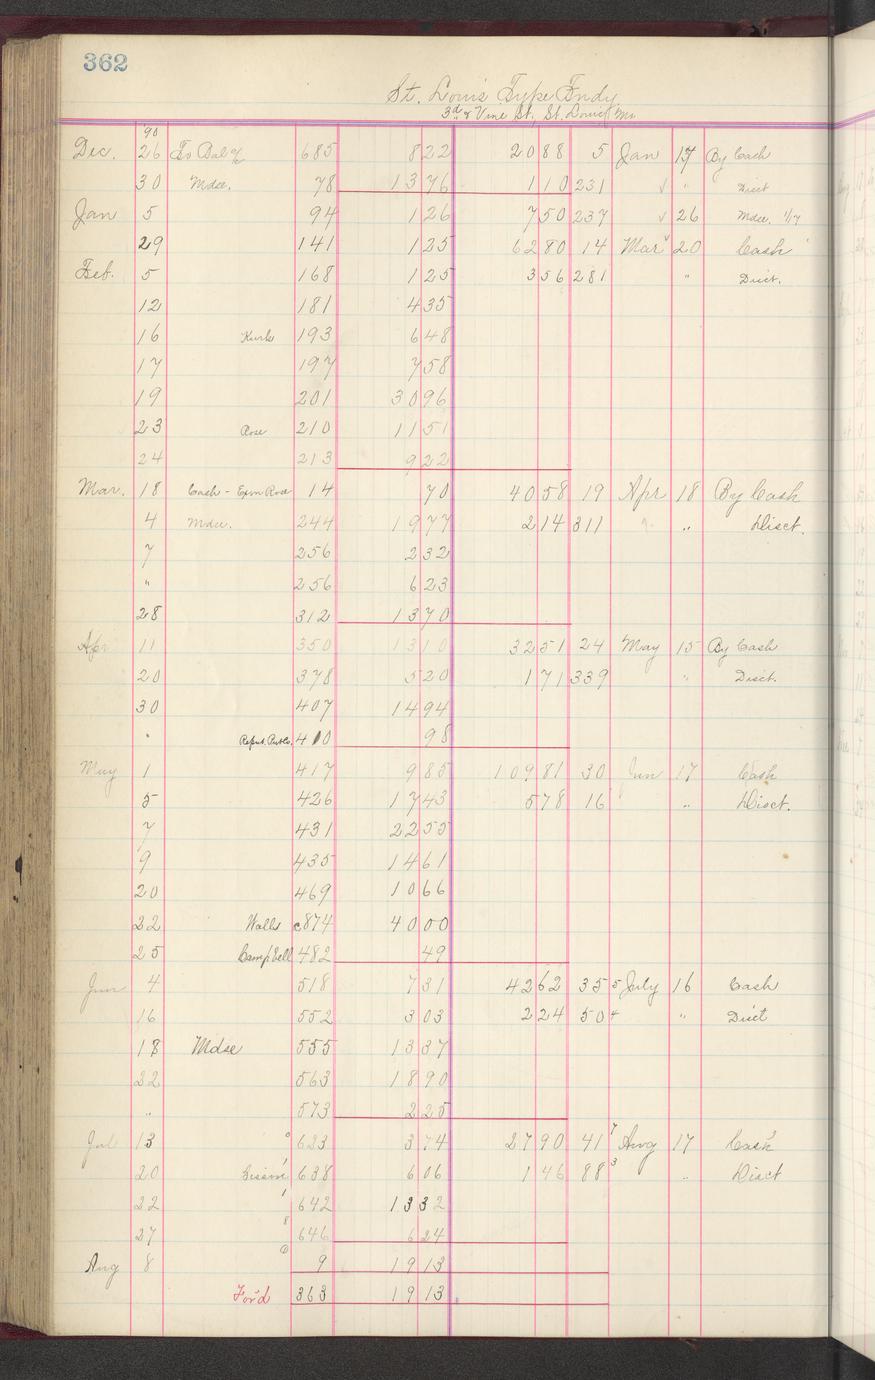 362
St. Louis Type Fndy
3d & Vine St., St. Louis Mo.
'90
Dec. 26 To Bal of 685 8 22 20 88 5 Jan 17 By Cash
30 Mdse. 78 13 76 1 10 231 √ " Disct
Jan 5 94 1 26 7 50 237 √ 26 Mdse. 1/7
29 141 1 25 62 80 14 Mar √ 20 Cash
Feb. 5 168 1 25 3 56 281 " Disct.
12 181 4 35
16 193 6 48
17 197 7 58
19 201 30 96
23 Rose 210 11 51
24 213 9 22
Mar. 18 Cash - 14 70 40 58 19 Apr 18 By Cash
4 Mdse. 244 19 77 2 14 311 " Disct.
7 256 2 32
" 256 6 23
28 312 13 70
Apr 11 350 13 10 32 51 24 May 15 By Cash
20 378 5 20 1 71 339 " Disct.
30 407 14 94
" Repub. Pub Co. 410 98
May 1 417 9 85 109 81 30 Jun 17 Cash
5 426 17 43 5 78 16 " Disct.
7 431 22 55
9 435 14 61
20 469 10 66
22 Walls c874 40 00
25 Campbell 482 49
Jun 4 518 7 31 42 62 35 5 July 16 Cash
16 552 3 03 2 24 50 4 " Disct
18 Mdse 555 13 37
22 563 18 90
" 573 2 25
Jul 13 623 3 74 27 90 41 7 Aug 17 Cash
20 638 6 06 1 46 88 3 " Disct
22 642 13 32
27 646 6 24
Aug 8 9 19 13
For'd 363 19 13